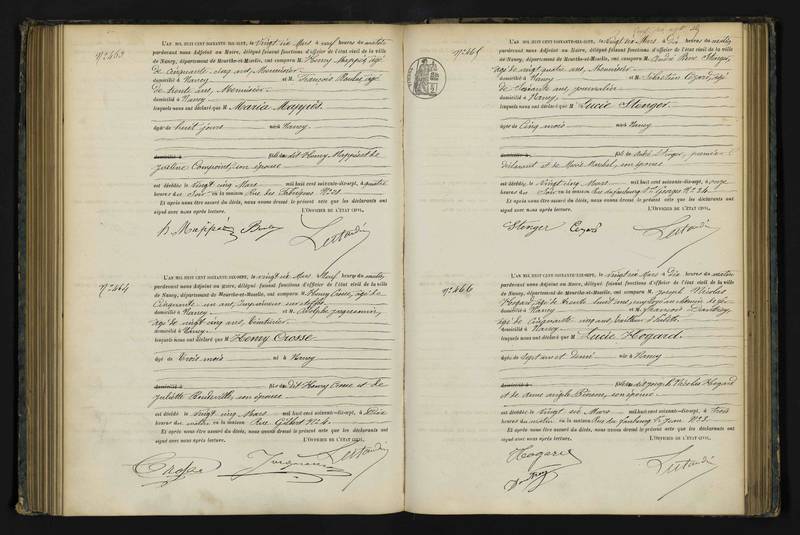 N° 463
L'AN MIL HUIT CENT SOIXANTE-DIX-SEPT, le vingt six Mars à neuf heures du matin
pardevant nous Adjoint au Maire, délégué faisant fonctions d'officier de l'état civil de la ville
de Nancy, département de Meurthe-et-Moselle, ont comparu M. Henry Mappés, âgé
de cinquante cinq ans, Menuisier
domicilié à Nancy et M. François âgé
de trente ans, Menuisier
domicilié à Nancy
lesquels nous ont déclaré que M Maria Mappiés
âgée de huit jours née à Nancy
domicilié à fille du dit Henry Mappés et de
Justine son épouse
est décédée le vingt cinq Mars mil huit cent soixante-dix-sept, à quatre
heures du soir en la maison Rue des Fabriques N° 21
Et après nous être assuré du décès, nous avons dressé le présent acte que les déclarants ont
signé avec nous après lecture. L'OFFICIER DE L'ÉTAT CIVIL,
h. Mappés
N° 464
L'AN MIL HUIT CENT SOIXANTE-DIX-SEPT, le vingt six Mars à neuf heures du matin
pardevant nous Adjoint au Maire, délégué faisant fonctions d'officier de l'état civil de la ville
de Nancy, département de Meurthe-et-Moselle, ont comparu M. Henry Crosse, âgé de
cinquante un ans, Imprimeur sur étoffes
domicilié à Nancy et M. Adolphe
âgé de vingt cinq ans, Teinturier
domicilié à Nancy
lesquels nous ont déclaré que M Henry Crosse
âgé de trois mois né à Nancy
domicilié à fils du dit Henry Crosse et de
Juliette son épouse
est décédé le vingt cinq Mars mil huit cent soixante-dix-sept, à
heures du matin en la maison Rue Gilbert N° 4
Et après nous être assuré du décès, nous avons dressé le présent acte que les déclarants ont
signé avec nous après lecture. L'OFFICIER DE L'ÉTAT CIVIL,
Crosse
N° 465
L'AN MIL HUIT CENT SOIXANTE-DIX-SEPT, le vingt six Mars à dix heures du matin
pardevant nous Adjoint au Maire, délégué faisant fonctions d'officier de l'état civil de la ville
de Nancy, département de Meurthe-et-Moselle, ont comparu M. André Stenger,
âgé de vingt quatre ans, Menuisier
domicilié à Nancy et M. Sébastien âgé
de soixante ans, journalier
domicilié à Nancy
lesquels nous ont déclaré que M Lucie Stenger
âgée de cinq mois née à Nancy
domicilié à fille de André Stenger, premier
déclarant et de Marie son épouse
est décédée le vingt cinq Mars mil huit cent soixante-dix-sept, à onze
heures du soir en la maison Rue du faubourg St Georges N° 34
Et après nous être assuré du décès, nous avons dressé le présent acte que les déclarants ont
signé avec nous après lecture. L'OFFICIER DE L'ÉTAT CIVIL,
Stenger
N° 466
L'AN MIL HUIT CENT SOIXANTE-DIX-SEPT, le vingt six Mars à dix heures du matin
pardevant nous Adjoint au Maire, délégué faisant fonctions d'officier de l'état civil de la ville
de Nancy, département de Meurthe-et-Moselle, ont comparu M. Joseph Nicolas
Hogard, âgé de trente huit ans, employé au chemin de fer
domicilié à Nancy et M. François
âgé de cinquante cinq ans,
domicilié à Nancy
lesquels nous ont déclaré que M Lucie Hogard
âgée de sept ans et demi née à Nancy
domicilié à fille du dit Joseph Nicolas Hogard
et de son épouse
est décédée le vingt six Mars mil huit cent soixante-dix-sept, à trois
heures du matin en la maison Rue du faubourg St Jean N° 3
Et après nous être assuré du décès, nous avons dressé le présent acte que les déclarants ont
signé avec nous après lecture. L'OFFICIER DE L'ÉTAT CIVIL,
Hogard